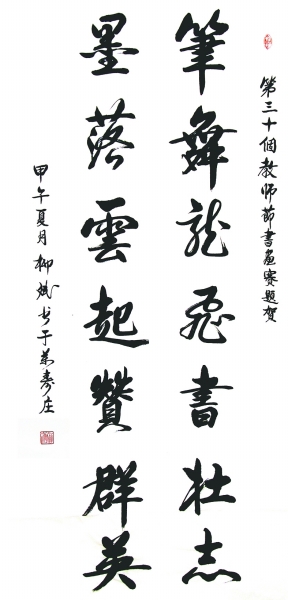 第三十個教師節書畫賽題賀
筆舞龍飛書壯志
墨落雲起贊群英
甲午夏月柳斌书于萬壽庄